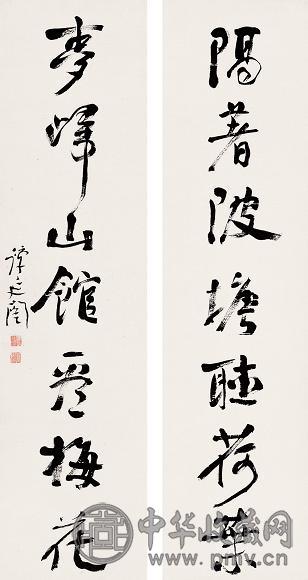 隔著陂塘聽荷葉
夢歸山館梅花
譚延闓
中华收藏网
www.pmcv.cn